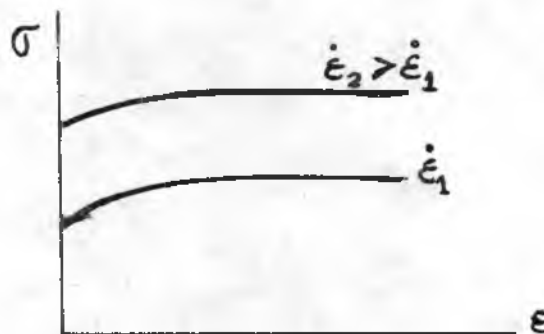 σ
ε̇₂ > ε̇₁
ε̇₁
ε